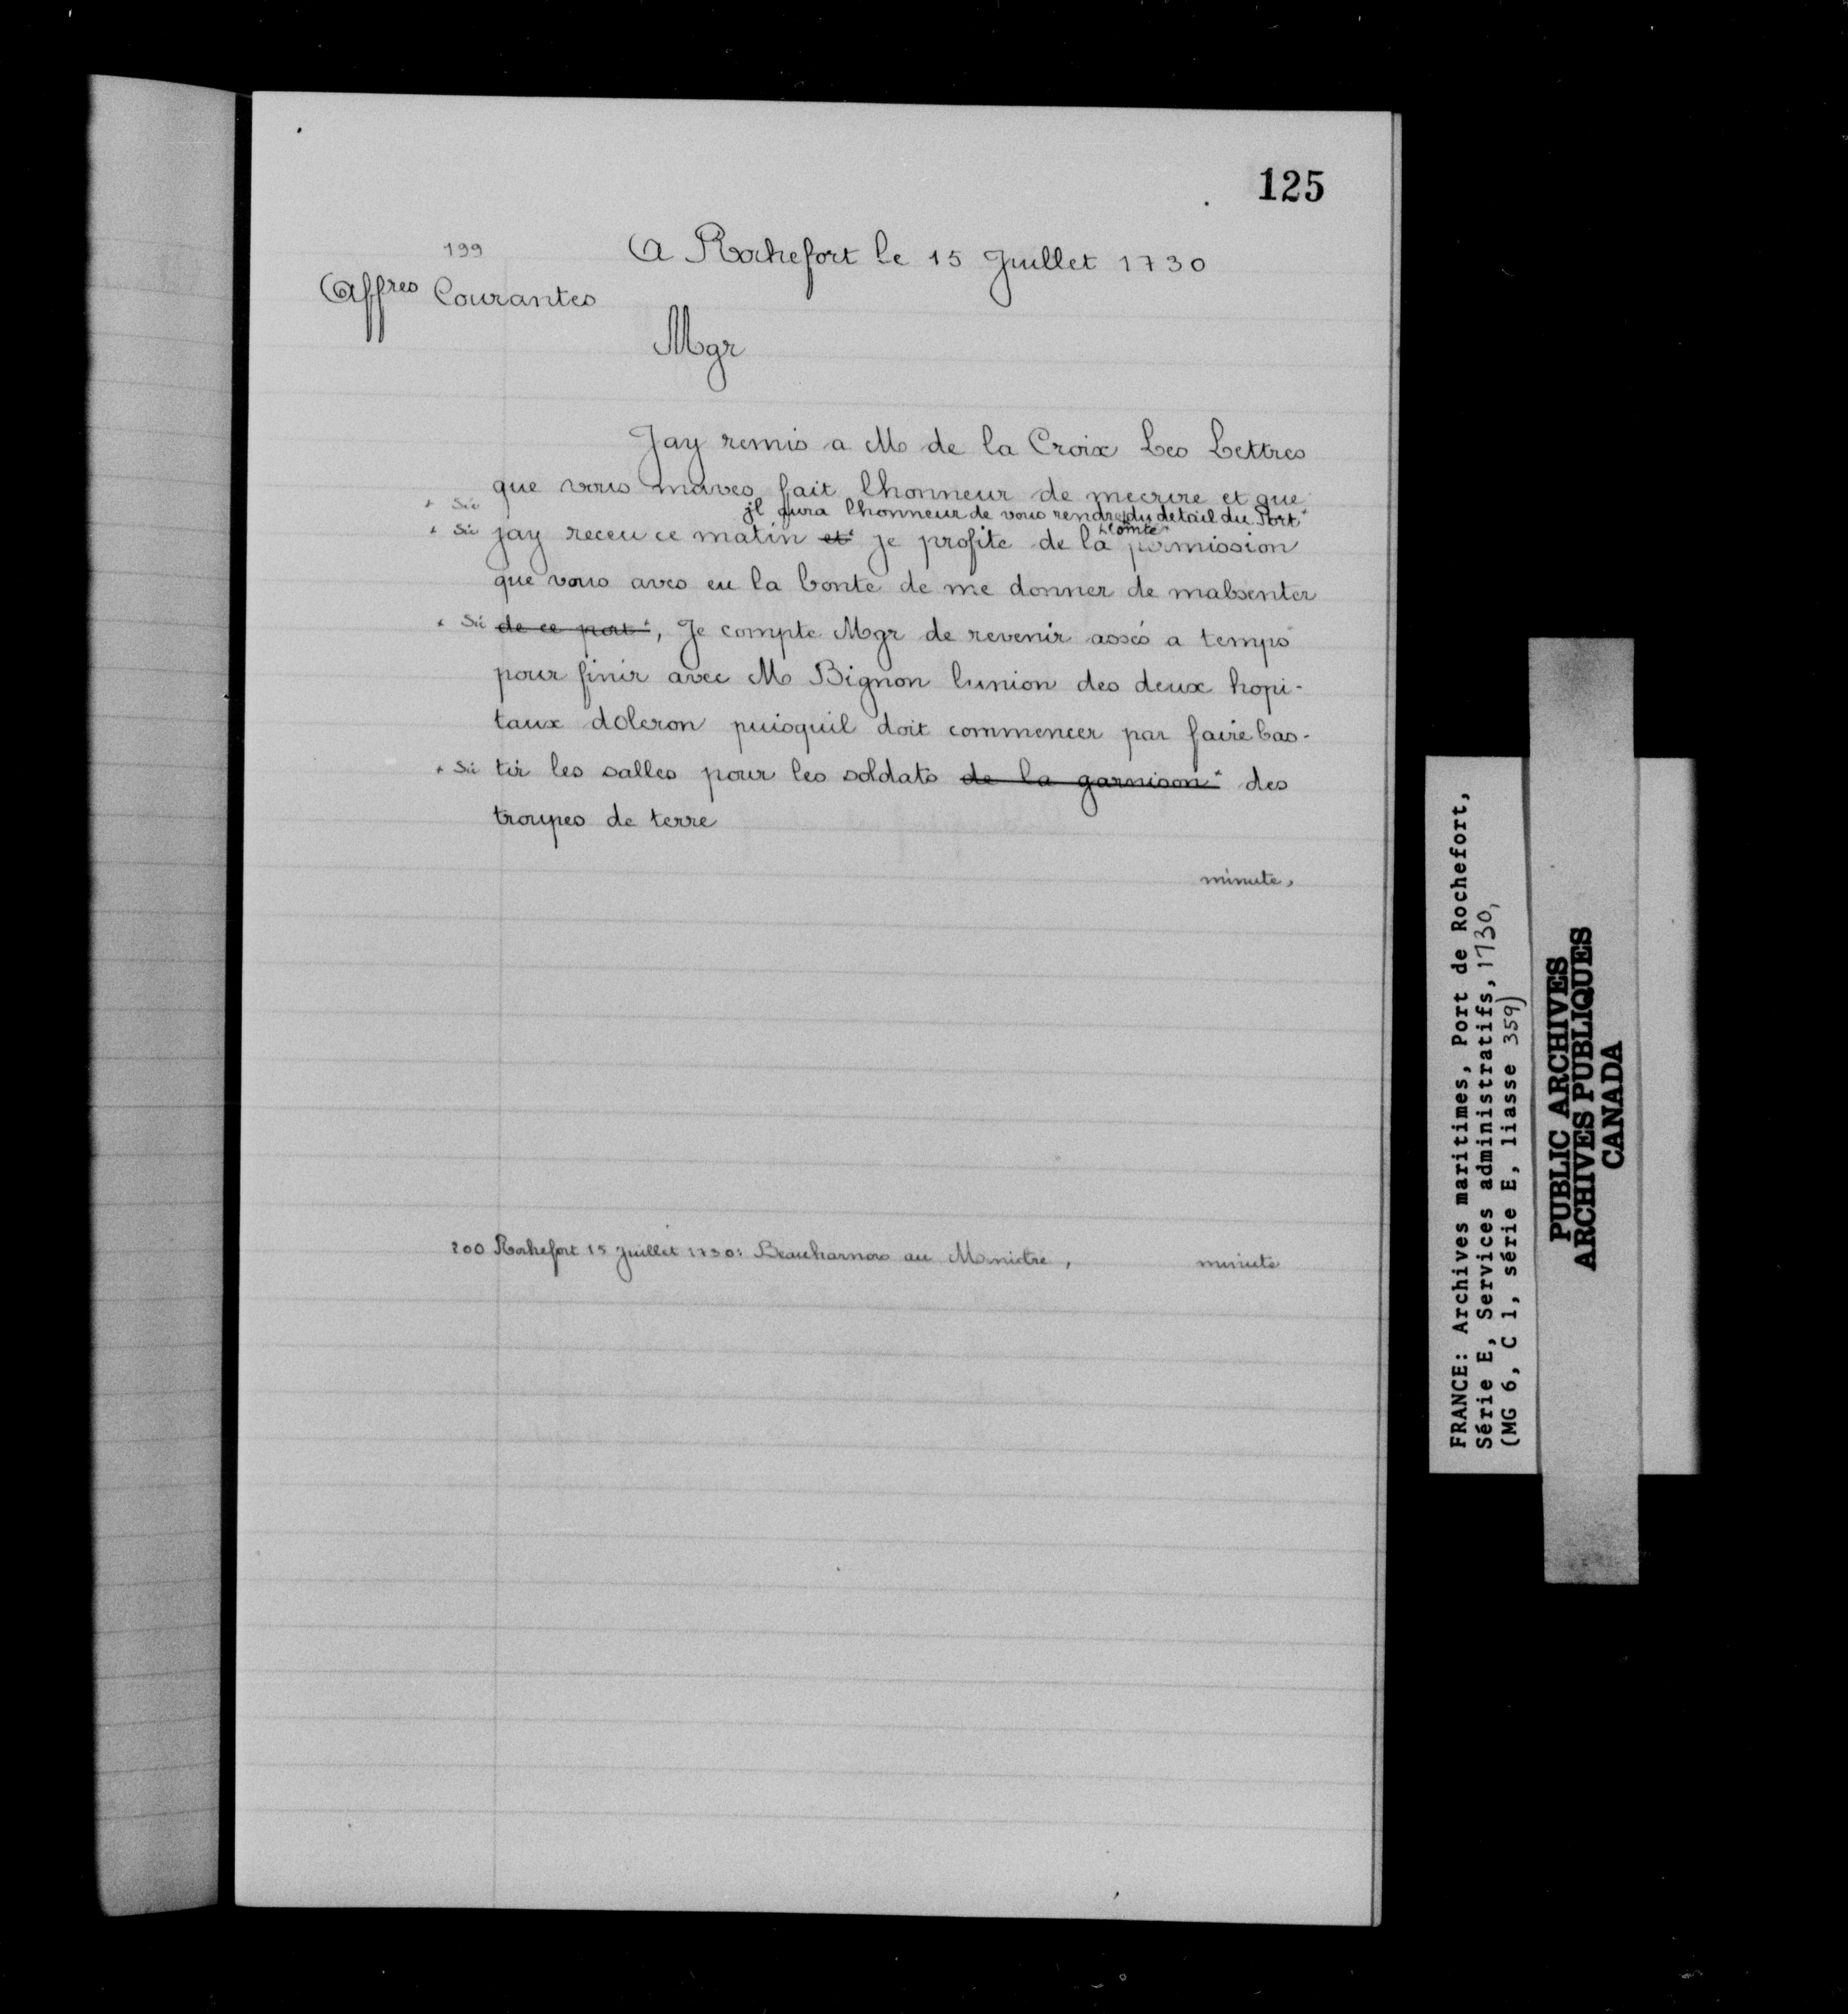 125
199
A Rochefort le 15 Juillet 1730
Affres Courantes
Mgr
Jay remis a M de la Croix Les Lettres
que vous maves fait lhonneur de mecrire et que
* Sic
jl aura lhonneur de vous rendre du detail du Port*
Comte
* Sic jay receu ce matin et* je profite de la permission
que vous aves eu la bonte de me donner de mabsenter
* Sic de ce port*, Je compte Mgr de revenir assés a temps
pour finir avec M Bignon lunion des deux hopi-
taux doleron puisquil doit commencer par faire bas-
* Sic tir les salles pour les soldats de la garnison* des
troupes de terre
minute,
200 Rochefort 15 Juillet 1730: Beauharnois au Ministre, minute
FRANCE: Archives maritimes, Port de Rochefort,
Série E, Services administratifs, 1730,
(MG 6, C 1, série E, liasse 359)
PUBLIC ARCHIVES
ARCHIVES PUBLIQUES
CANADA